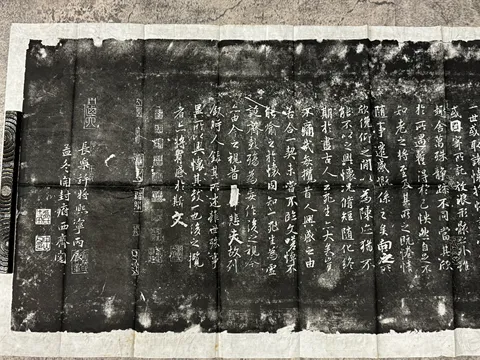 一世或取諸懷抱
或因寄所託放浪形骸之外雖
趣舍萬殊靜躁不同當其欣
於所遇蹔得於己怏然自足不
知老之將至及其所之既惓情
隨事遷感慨係之矣向之
欣俛仰之閒以為陳迹猶不
能不以之興懷況脩短隨化終
期於盡古人云死生亦大矣豈
不痛哉每攬昔人興感之由
若合一契未嘗不臨文嗟悼不
能喻之於懷固知一死生為虛
誕齊彭殤為妄作後之視今
亦由今之視昔悲夫故列
敘時人錄其所述雖世殊事
異所以興懷其致一也後之攬
者亦將有感於斯文
長樂許將熙寧丙辰
孟冬開封府西齋閱